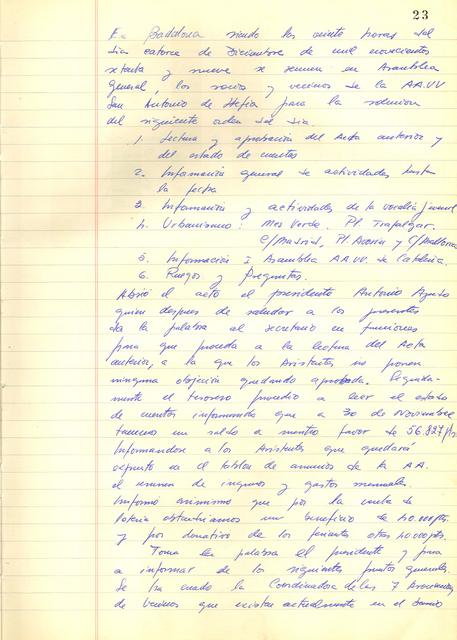 23
En Badalona siendo las veinte horas del
dia catorce de Diciembre de mil novecientos
setenta y nueve se reunen en Asamblea
General, los socios y vecinos de la AA.VV
San Antonio de Llefia para la
del siguiente orden del dia.
1. Lectura y aprobación del Acta anterior y
del estado de cuentas
2. Información general de actividades hasta
la fecha
3. Información y actividades de la vocalia juvenil
4. Urbanismo: Mas Verde. Pl. Trafalgar.
C/ Madrid, Pl. y C/ Mallorca
5. Información I Asamblea AA.VV. de Cataluña.
6. Ruegos y Preguntas.
Abrió el acto el presidente Antonio
quien despues de saludar a los presentes
da la palabra al secretario en funciones
para que proceda a la lectura del Acta
anterior, a la que los Asistentes no ponen
ninguna objeción quedando aprobada. Seguida-
mente el tesorero procedio a leer el estado
de cuentas informando que a 30 de Noviembre
tenemos un saldo a nuestro favor de 56.827 pts.
Informandose a los Asistentes que quedará
expuesto en el tablon de anuncios de la AA.
el resumen de ingresos y gastos mensuales.
Informo asimismo que por la venta de
loteria obtendriamos un beneficio de 40.000 pts.
y por donativo de los otras 40.000 pts.
Toma la palabra el presidente y pasa
a informar de los siguientes puntos generales.
Se ha creado la Coordinadora de las 7 Asociaciones
de Vecinos que existen actualmente en el barrio